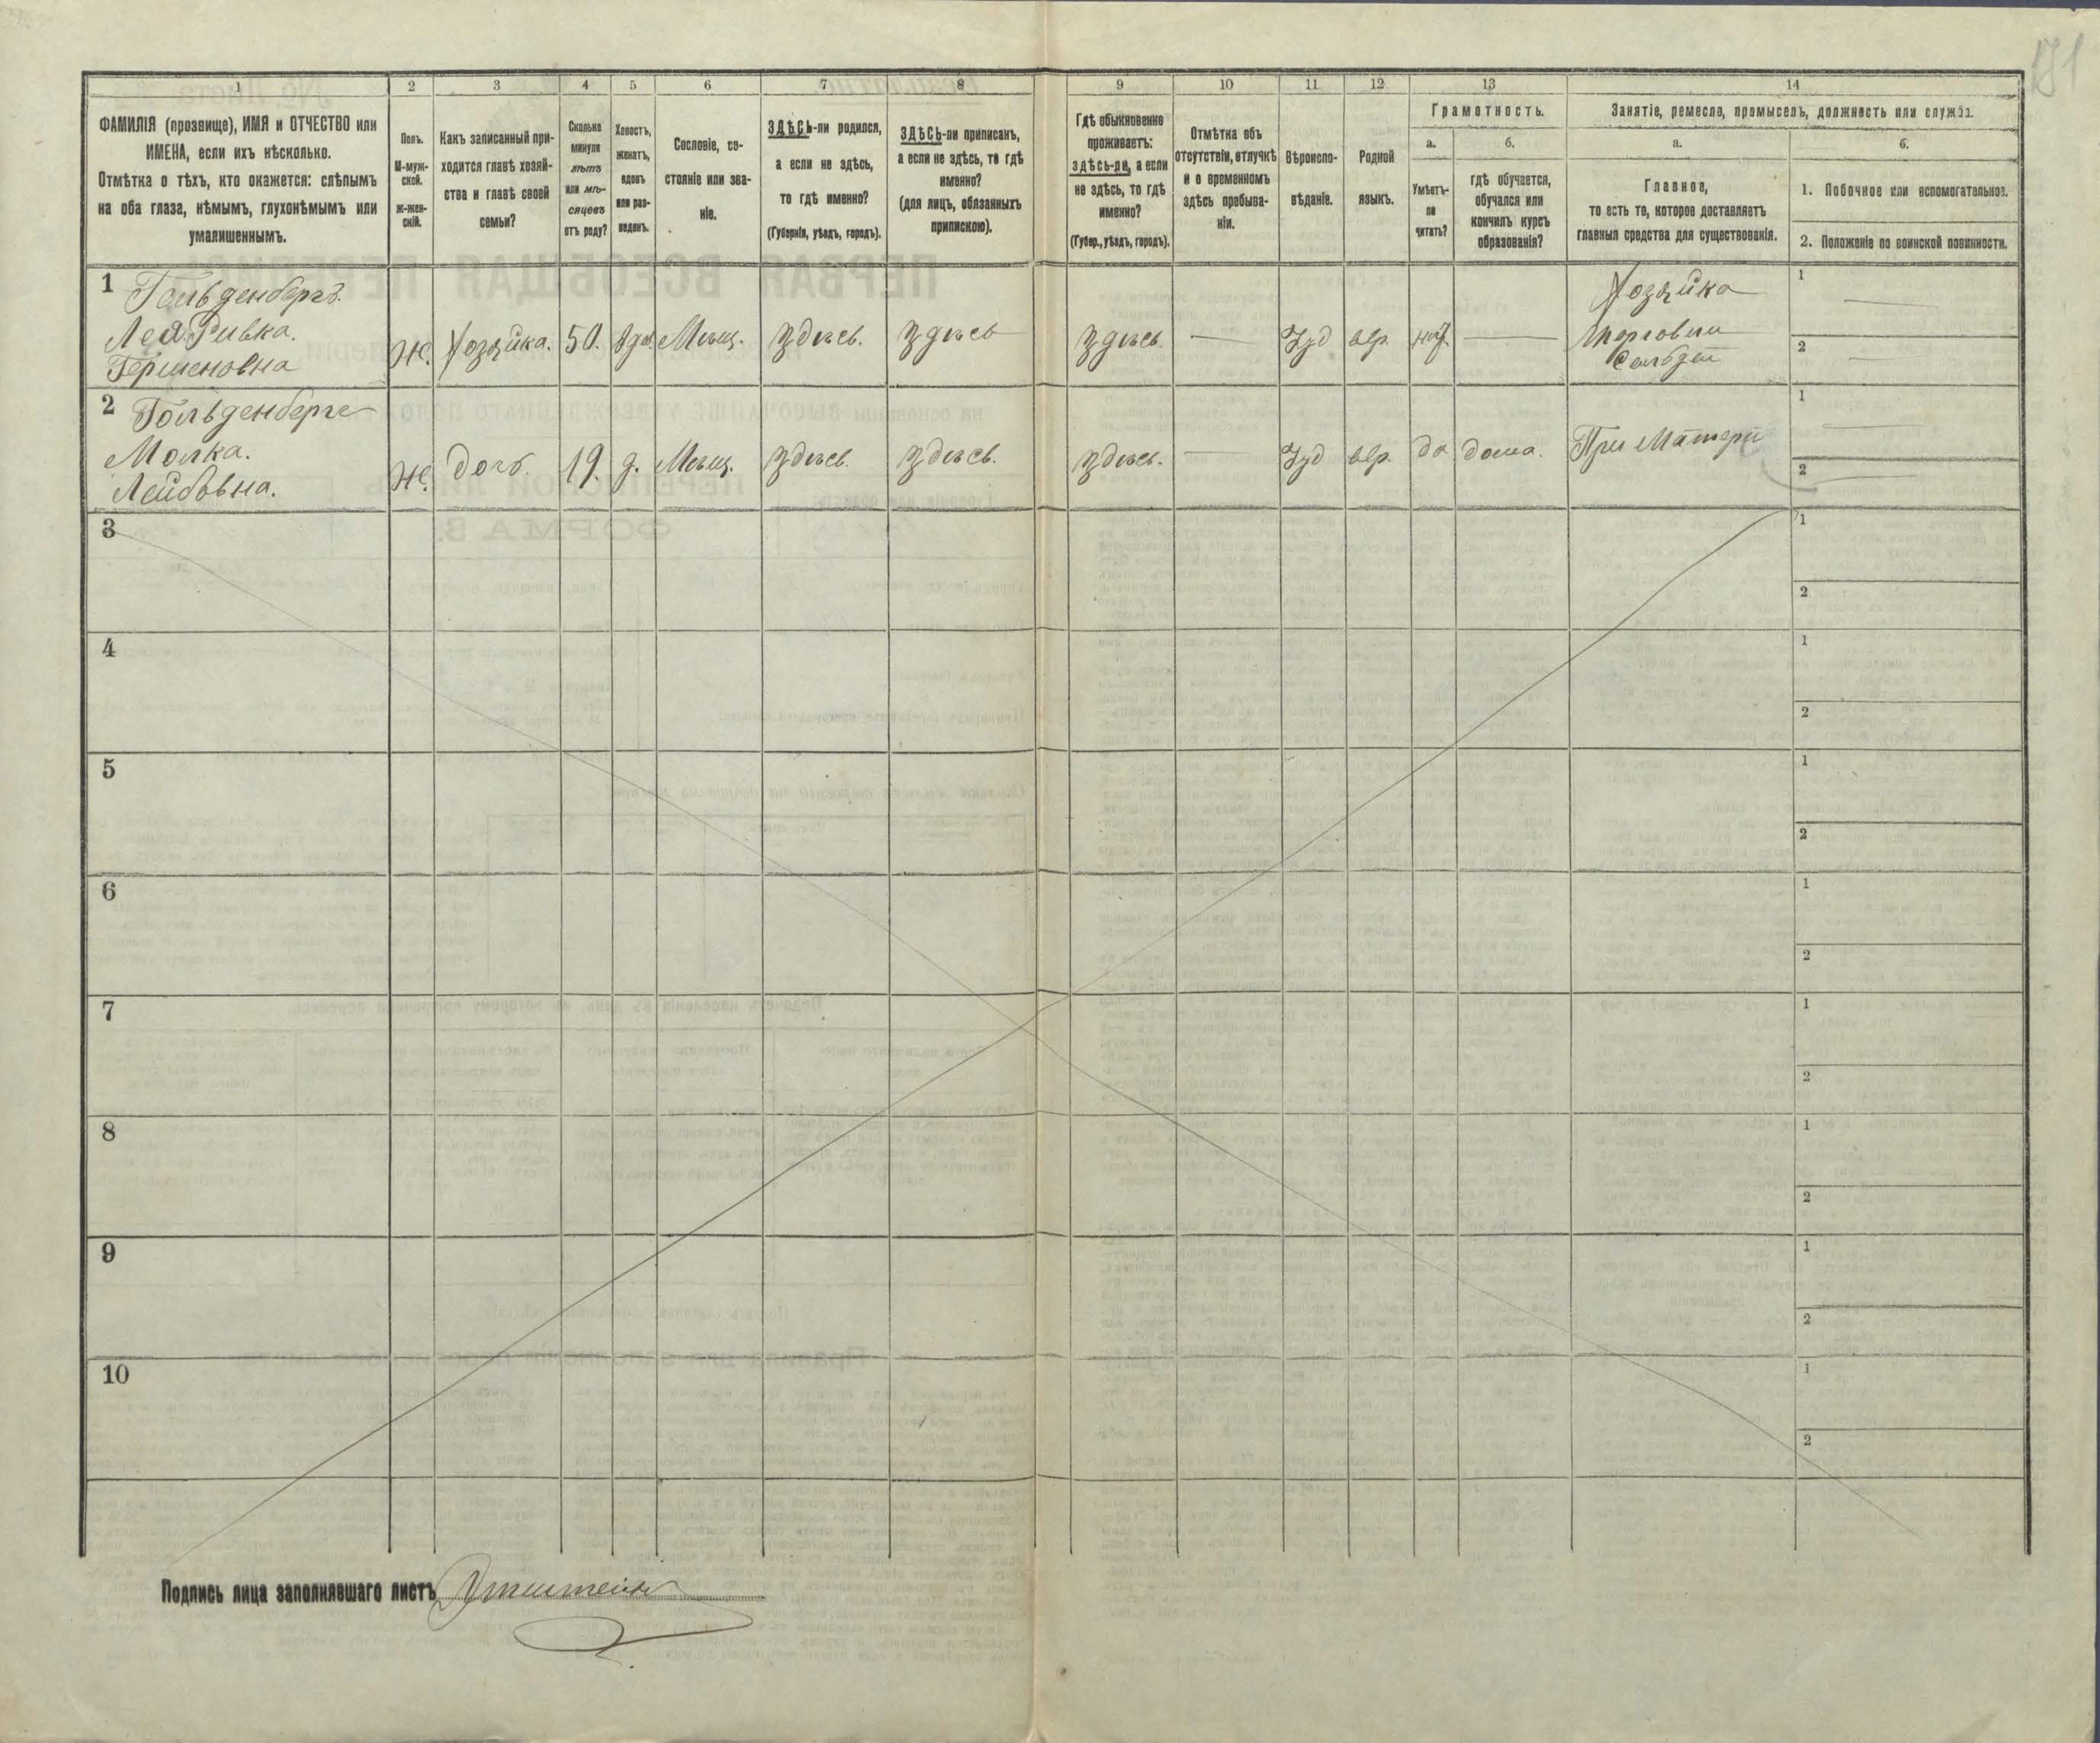 181
1
2
3
4
5
6
7
8
9
10
11
12
13
14
ФАМИЛІЯ (прозвище), ИМЯ и ОТЧЕСТВО или
ИМЕНА, если ихъ нѣсколько.
Отмѣтка о тѣхъ, кто окажется: слѣпымъ
на оба глаза, нѣмымъ, глухонѣмымъ или
умалишеннымъ.
Полъ.
М-муж-
ской.
Ж-жен-
скій.
Какъ записанный при-
ходится главѣ хозяй-
ства и главѣ своей
семьи?
Сколько
минуло
лѣтъ
или мѣ-
сяцевъ
отъ роду?
Холостъ,
женатъ,
вдовъ
или раз-
веденъ.
Сословіе, со-
стояніе или зва-
ніе.
ЗДѢСЬ-ли родился,
а если не здѣсь,
то гдѣ именно?
(Губернія, уѣздъ, городъ).
ЗДѢСЬ-ли приписанъ,
а если не здѣсь, то гдѣ
именно?
(для лицъ, обязанныхъ
припискою).
Гдѣ обыкновенно
проживаетъ:
здѣсь-ли, а если
не здѣсь, то гдѣ
именно?
(Губер., уѣздъ, городъ).
Отмѣтка объ
отсутствіи, отлучкѣ
и о временномъ
здѣсь пребыва-
ніи.
Вѣроиспо-
вѣданіе.
Родной
языкъ.
Грамотность.
а.
Умѣетъ-
ли
читать?
б.
гдѣ обучается,
обучался или
кончилъ курсъ
образованія?
Занятіе, ремесло, промыселъ, должность или служба.
а.
Главное,
то есть то, которое доставляетъ
главныя средства для существованія.
б.
1. Побочное или вспомогательное.
2. Положеніе по воинской повинности.
1 Гольденбергъ.
Лея Ривка.
Гершеновна
Ж.
Хозяйка.
50.
Вдов.
Мѣщ.
Здѣсь.
Здѣсь
Здѣсь.
—
Іуд
евр.
нѣт.
—
Хозяйка
торговли
сельдей
1
2
2 Гольденберг
Молка.
Лейбовна.
Ж.
дочь.
19.
д.
Мѣщ.
Здѣсь.
Здѣсь.
Здѣсь.
—
Іуд
евр.
да
дома.
При Матери
1
2
3
1
2
4
1
2
5
1
2
6
1
2
7
1
2
8
1
2
9
1
2
10
1
2
Подпись лица заполнявшаго листъ